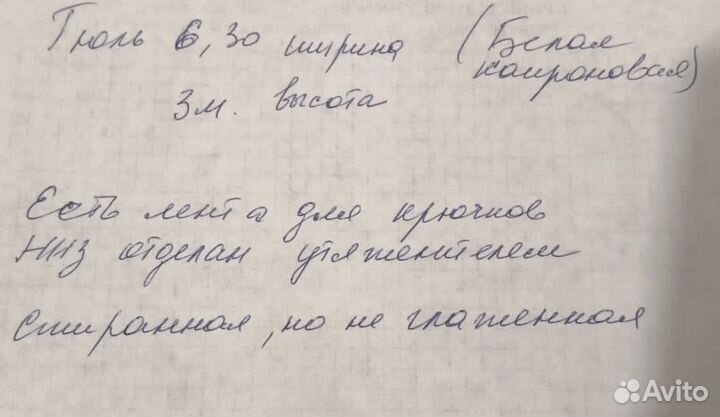 Тюль 6,30 ширина (Белая
капроновая)
3м. высота
Есть лента для крючков
низ отделан утяжентелем
стиранная, но не глаженная
Avito